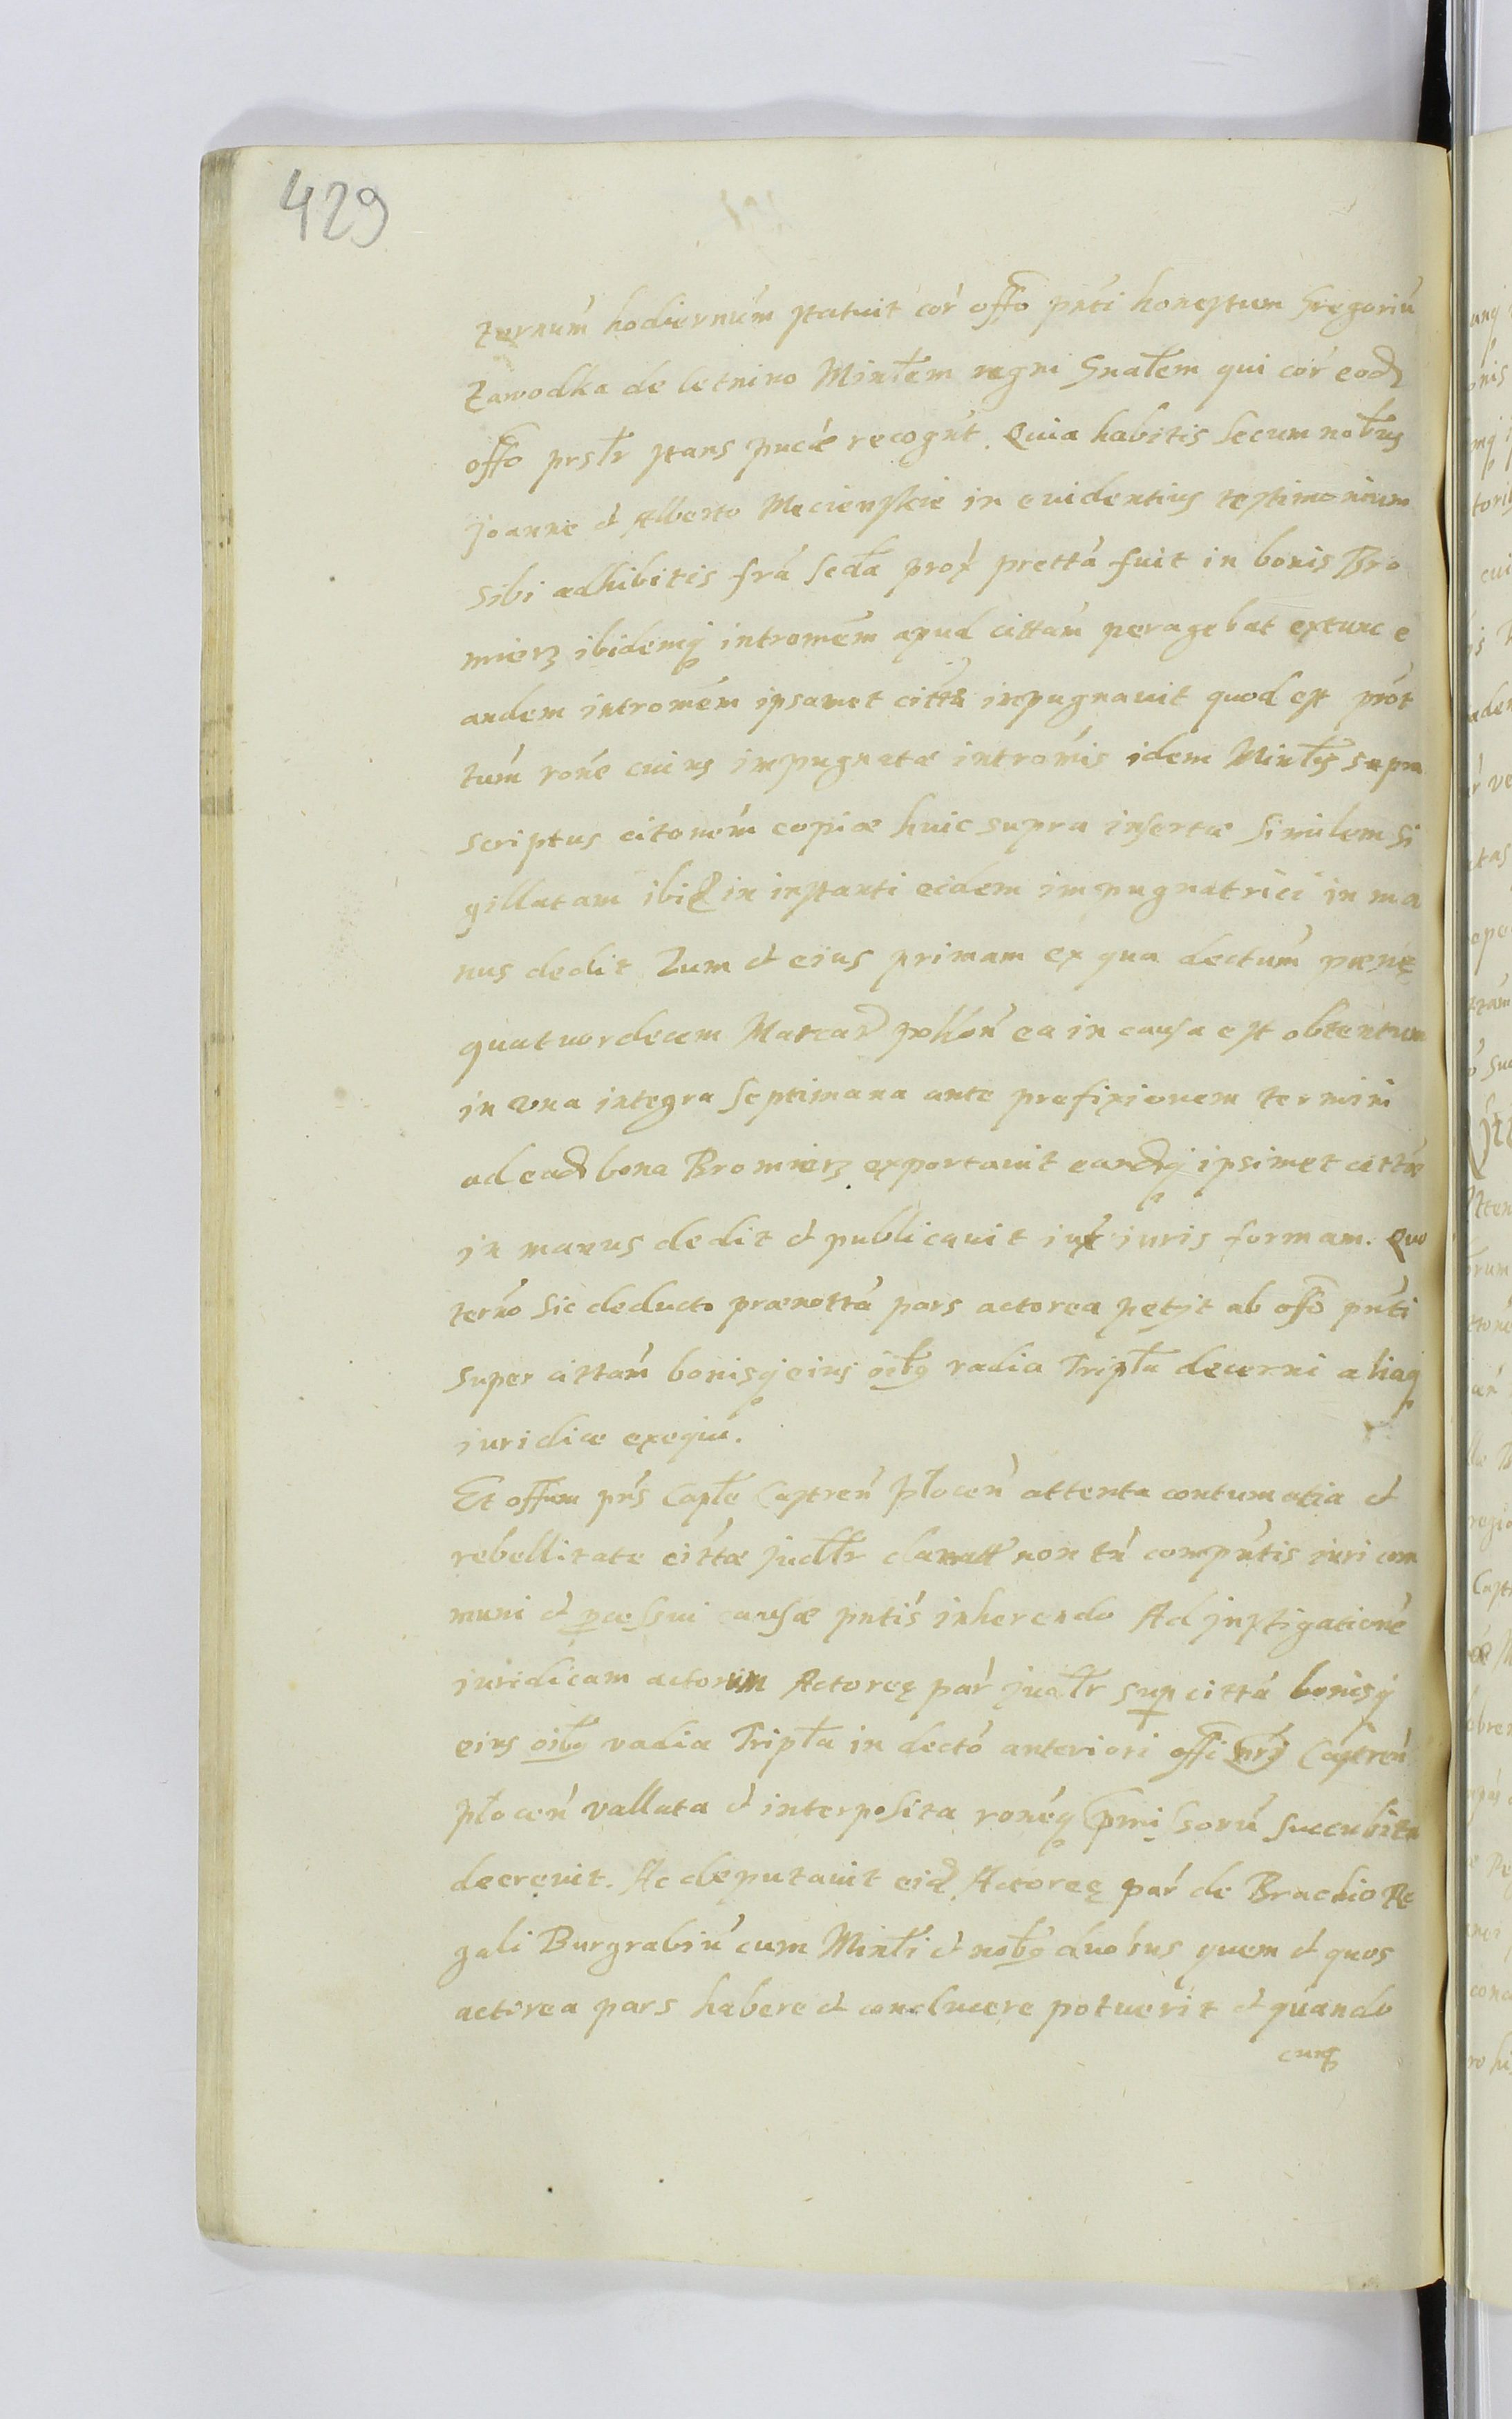 429
termum hodiernum statuit cor offo pnti honestum Gregoriu
Zawodka de Letnino Minlem regni Gnalem qui cor eod
offo prslr stans pucæ recognt. Quia habitis secum nobus
Joanne et Alberto Mecienskie in euidentius testimonium
sibi adhibitis fra seda prox pretta fuit in bonis Bro
mierz ibidemq intromem apud cittam peragebat extunc e
andem intromem ipsamet citta inpugnauit quod est prot
tum rone cuius impugnatæ intromis idem Minlis supra
scriptus citonem copiæ huic supra insertæ similem si
gillatam ibid in instanti eidem impugnatrici in ma
nus dedit Tum et eius primam ex qua dectum pænę
quatuordecem Marcar polion ea in causa est obtentum
in vna integra septimana ante prefixionem termini
ad ead bona Bromierz exportauit eandq ipsimet cittæ
in manus dedit et publicauit iux iuris formam. Quo
terno sic deducto prænotta pars actorea petyt ab offo pnti
super cittam bonisq eius oibg vadia Tripla decerni aliaq
iuridice exequi.
Et offum pns Caple Castren Plocen attenta contumatia et
rebellitate cittæ judlr non tn compntis iuri com
muni et pcessui causæ pntis inherendo Ad instigatione
iuridicam actorum Actoreę par jualr sup citta bonisq
eius oibg vadia Tripla in decto anteriori offi nri Castren
plocen vallata et interposita roneq pmi Soru succubita
decreuit. Ac deputauit eid Actoreę par de Brachio Re
gali Burgrabiu cum Minli et nobg duobus quem et quos
actorea pars habere et conducere potuerit et quando
cunq